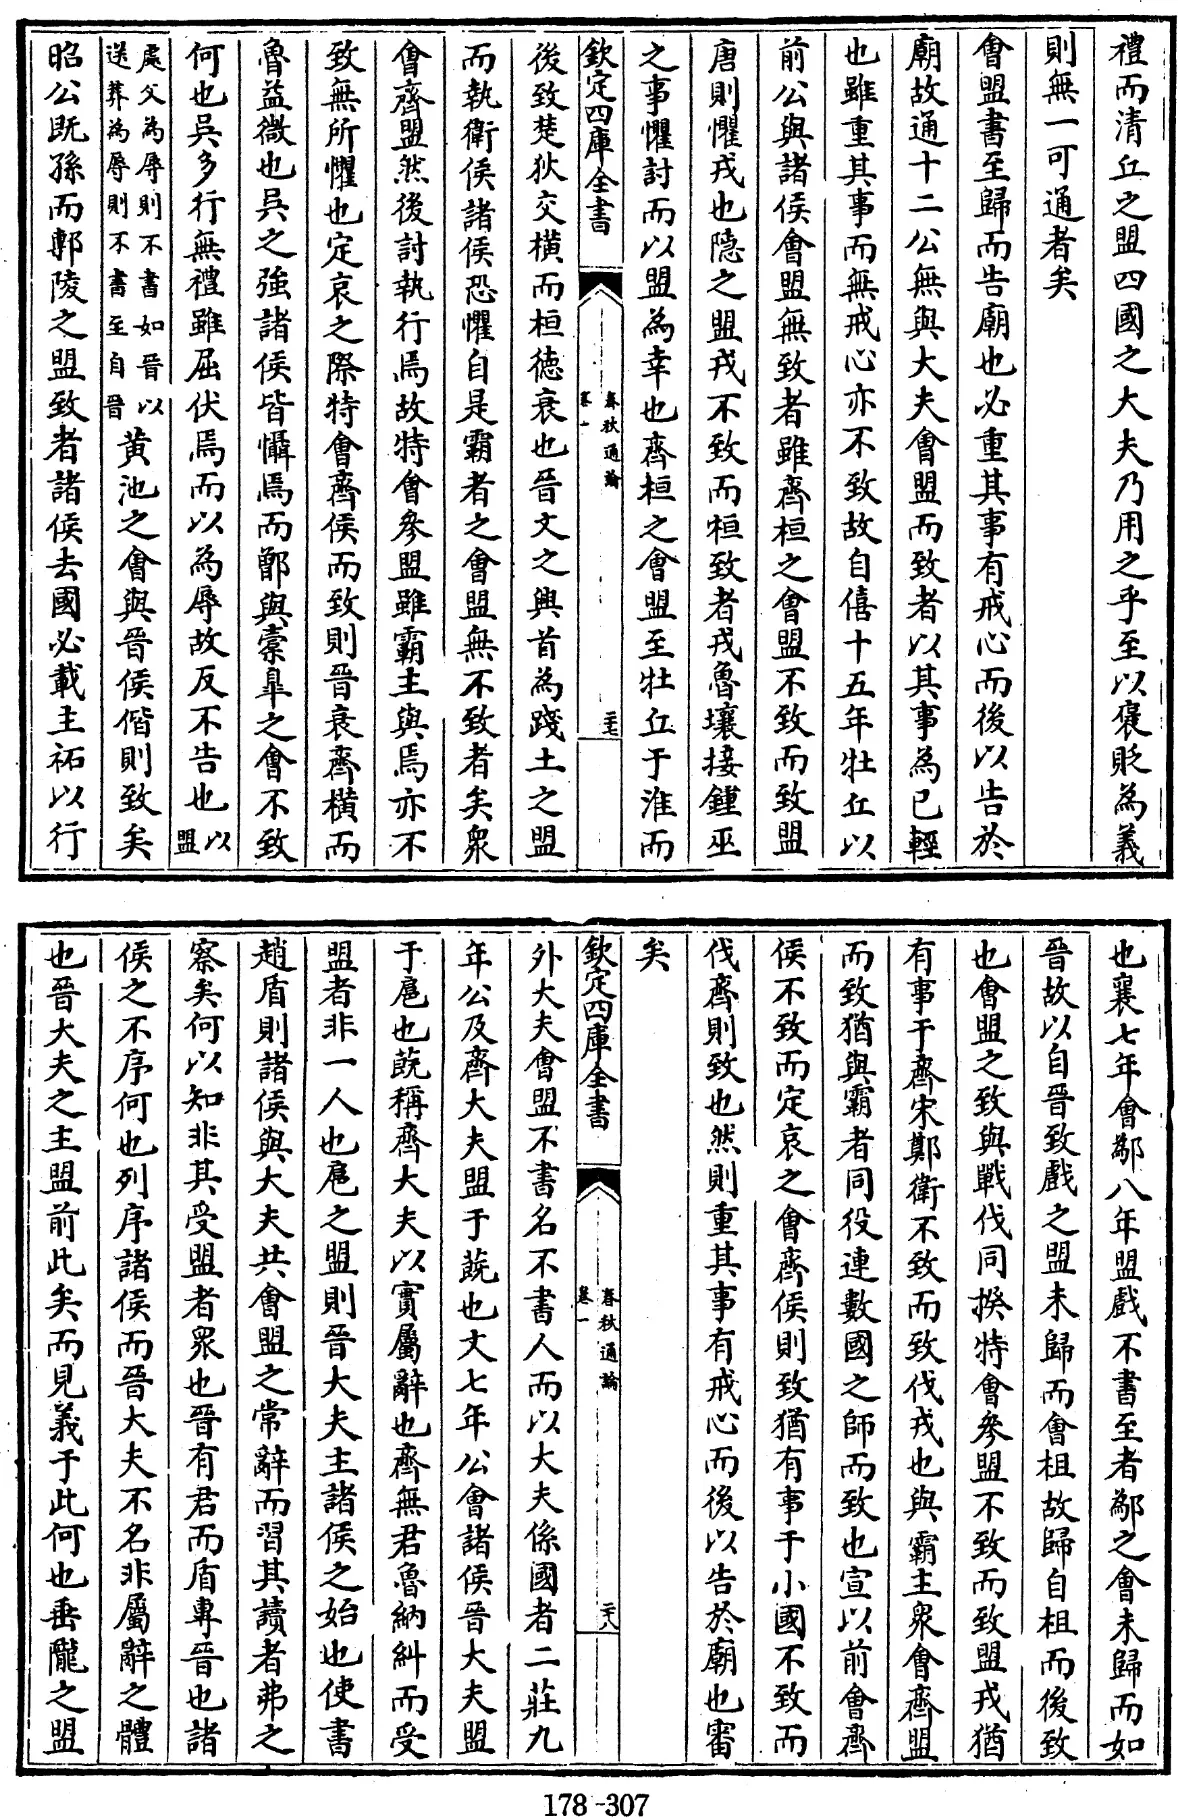 禮而清丘之盟四國之大夫乃用之乎至以襃貶為義
則無一可通者矣
會盟書至歸而告廟也必重其事有戒心而後以告於
廟故通十二公無與大夫會盟而致者以其事為已輕
也雖重其事而無戒心亦不致故自僖十五年牡丘以
前公與諸侯會盟無致者雖齊桓之會盟不致而致盟
唐則懼戎也隐之盟戎不致而桓致者戎魯壤接鍾巫
之事懼討而以盟為幸也齊桓之會盟至牡丘于淮而
欽定四庫全書
春秋通論
卷一
二十七
後致楚狄交横而桓徳衰也晉文之興首為踐土之盟
而執衛侯諸侯恐懼自是霸者之會盟無不致者矣衆
會齊盟然後討執行焉故特會參盟雖霸主與焉亦不
致無所懼也定哀之際特會齊侯而致則晉衰齊横而
魯益微也吳之強諸侯皆懾焉而鄫與橐臯之會不致
何也吳多行無禮雖屈伏焉而以為辱故反不告也以盟
處父為辱則不書如晉以
送葬為辱則不書至自晉
黄池之會與晉侯偕則致矣
昭公既孫而鄟陵之盟致者諸侯去國必載主祏以行
也襄七年會鄬八年盟戲不書至者鄬之會未歸而如
晉故以自晉致戲之盟未歸而會柤故歸自柤而後致
也會盟之致與戰伐同揆特會參盟不致而致盟戎猶
有事于齊宋鄭衛不致而致伐戎也與霸主衆會齊盟
而致猶與霸者同役連數國之師而致也宣以前會齊
侯不致而定哀之會齊侯則致猶有事于小國不致而
伐齊則致也然則重其事有戒心而後以告於廟也審
矣
欽定四庫全書
春秋通論
卷一
二十八
外大夫會盟不書名不書人而以大夫係國者二莊九
年公及齊大夫盟于蔇也文七年公會諸侯晉大夫盟
于扈也蔇稱齊大夫以實屬辭也齊無君魯納糾而受
盟者非一人也扈之盟則晉大夫主諸侯之始也使書
趙盾則諸侯與大夫共會盟之常辭而習其讀者弗之
察矣何以知非其受盟者衆也晉有君而盾專晉也諸
侯之不序何也列序諸侯而晉大夫不名非屬辭之體
也晉大夫之主盟前此矣而見義于此何也垂隴之盟
178-307